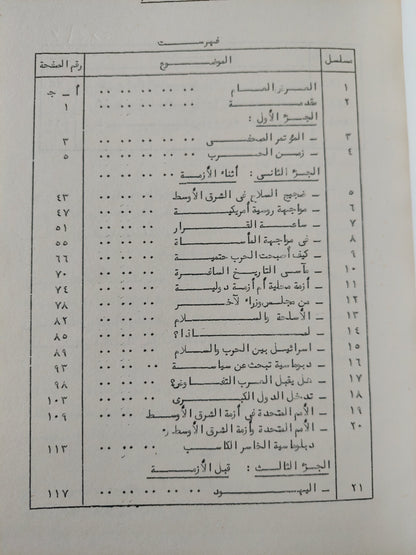 فهرست
مسلسل الموضوع رقم الصفحة
١ العرض العام ٠٠ ٠٠ ٠٠ ٠٠ أ ـ ج
٢ مقدمة ٠٠ ٠٠ ٠٠ ٠٠ ١
الجزء الأول :
٣ ـ المؤتمر الصحفى ٠٠ ٠٠ ٠٠ ٣
٤ ـ زمن الحرب ٠٠ ٠٠ ٠٠ ٥
الجزء الثانى : أثناء الأزمة
٥ ـ ضجيج السلاح فى الشرق الأوسط ٤٣
٦ ـ مواجهة روسية أمريكية ٠٠ ٠٠ ٤٧
٧ ـ ساعة القرار ٠٠ ٠٠ ٠٠ ٥١
٨ ـ فى مواجهة المأساة ٠٠ ٠٠ ٥٥
٩ ـ كيف أصبحت الحرب حتمية ٠٠ ٦٦
١٠ ـ مآسى التاريخ الساخرة ٠٠ ٧٠
١١ ـ أزمة محلية أم أزمة دولية ٠٠ ٧٤
١٢ ـ من مجلس وزراء لآخر ٠٠ ٧٨
١٣ ـ الأسلحة والسلام ٠٠ ٠٠ ٨٢
١٤ ـ لماذا؟ ٠٠ ٠٠ ٠٠ ٨٥
١٥ ـ اسرائيل بين الحرب والسلام ٨٩
١٦ ـ دبلوماسية تبحث عن سياسة ٩٣
١٧ ـ هل يقبل العرب التفاوض؟ ٩٨
١٨ ـ تدخل الدول الكبرى ٠٠ ١٠٣
١٩ ـ الأمم المتحدة فى أزمة الشرق الأوسط ١٠٩
٢٠ ـ الأمم المتحدة وأزمة الشرق الأوسط
دبلوماسية الخاسر الكاسب ٠٠ ١١٣
الجزء الثالث : قبل الأزمة
٢١ ـ اليهود ٠٠ ٠٠ ٠٠ ٠٠ ١١٧